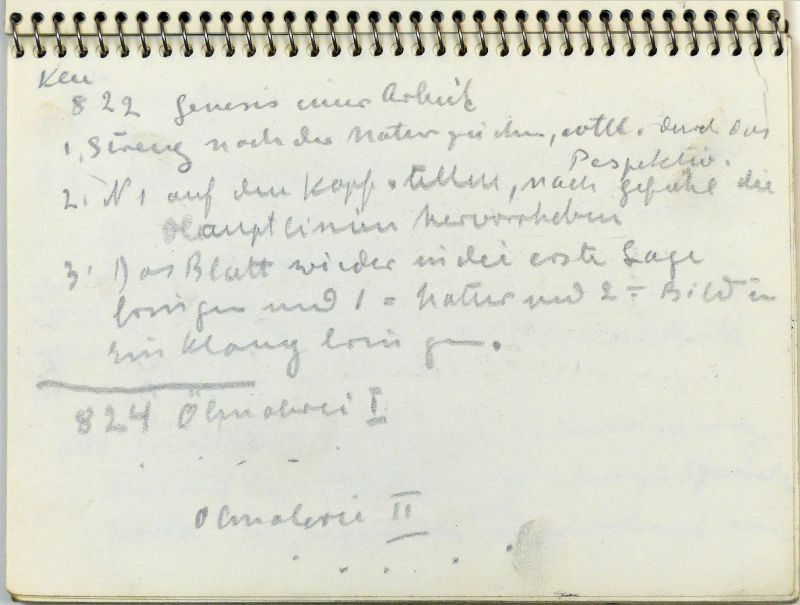 Klee
822 Genesis einer Arbeit
1, Streng nach der Natur zeichnen, evtl. durch das
Pespektiv.
2. N 1 auf den Kopf stellen, nach Gefühl die
Hauptlinien hervorheben
3. Das Blatt wieder in die erste Lage
bringen und 1 = Natur und 2 = Bild in
Einklang bringen.
824 Ölmalerei I
Ölmalerei II